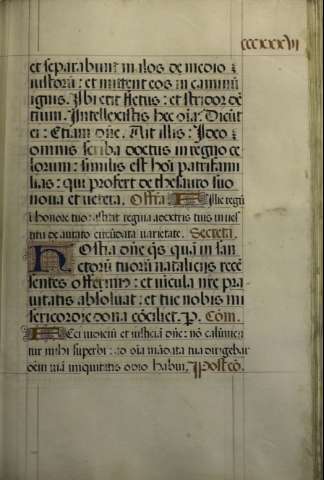 cccxxxvi
et separabunt malos de medio
iustorū: et mittent eos in caminū
ignis. Ibi erit fletus: et stridor dē
tium. Intellexistis hec oīa? Dicūt
ei: Etiam dn̄e. Ait illis: Ideo
omnis scriba doctus in regno ce
lorum: similis est hoī patrifami
lias: qui profert de thesauro suo
noua et uetera. Offa. Filie regū
ī honore tuo: astitit regina a dextris tuis in ues
titu de aurato circūdata uarietate. Secreta.
Hostia dn̄e q̄s quā in san
ctorū tuorū natalicijs recē
sentes offerimus: et uīcula nr̄e pra
uitatis absoluat: et tue nobis mi
sericordie dona cōciliet. P. Cōm.
Feci iudiciū et iusticiā dn̄e: nō calūnien
tur mihi superbi: ad oīa mādata tua dirigebar
oēm uiā iniquitatis odio habui. Postcō.